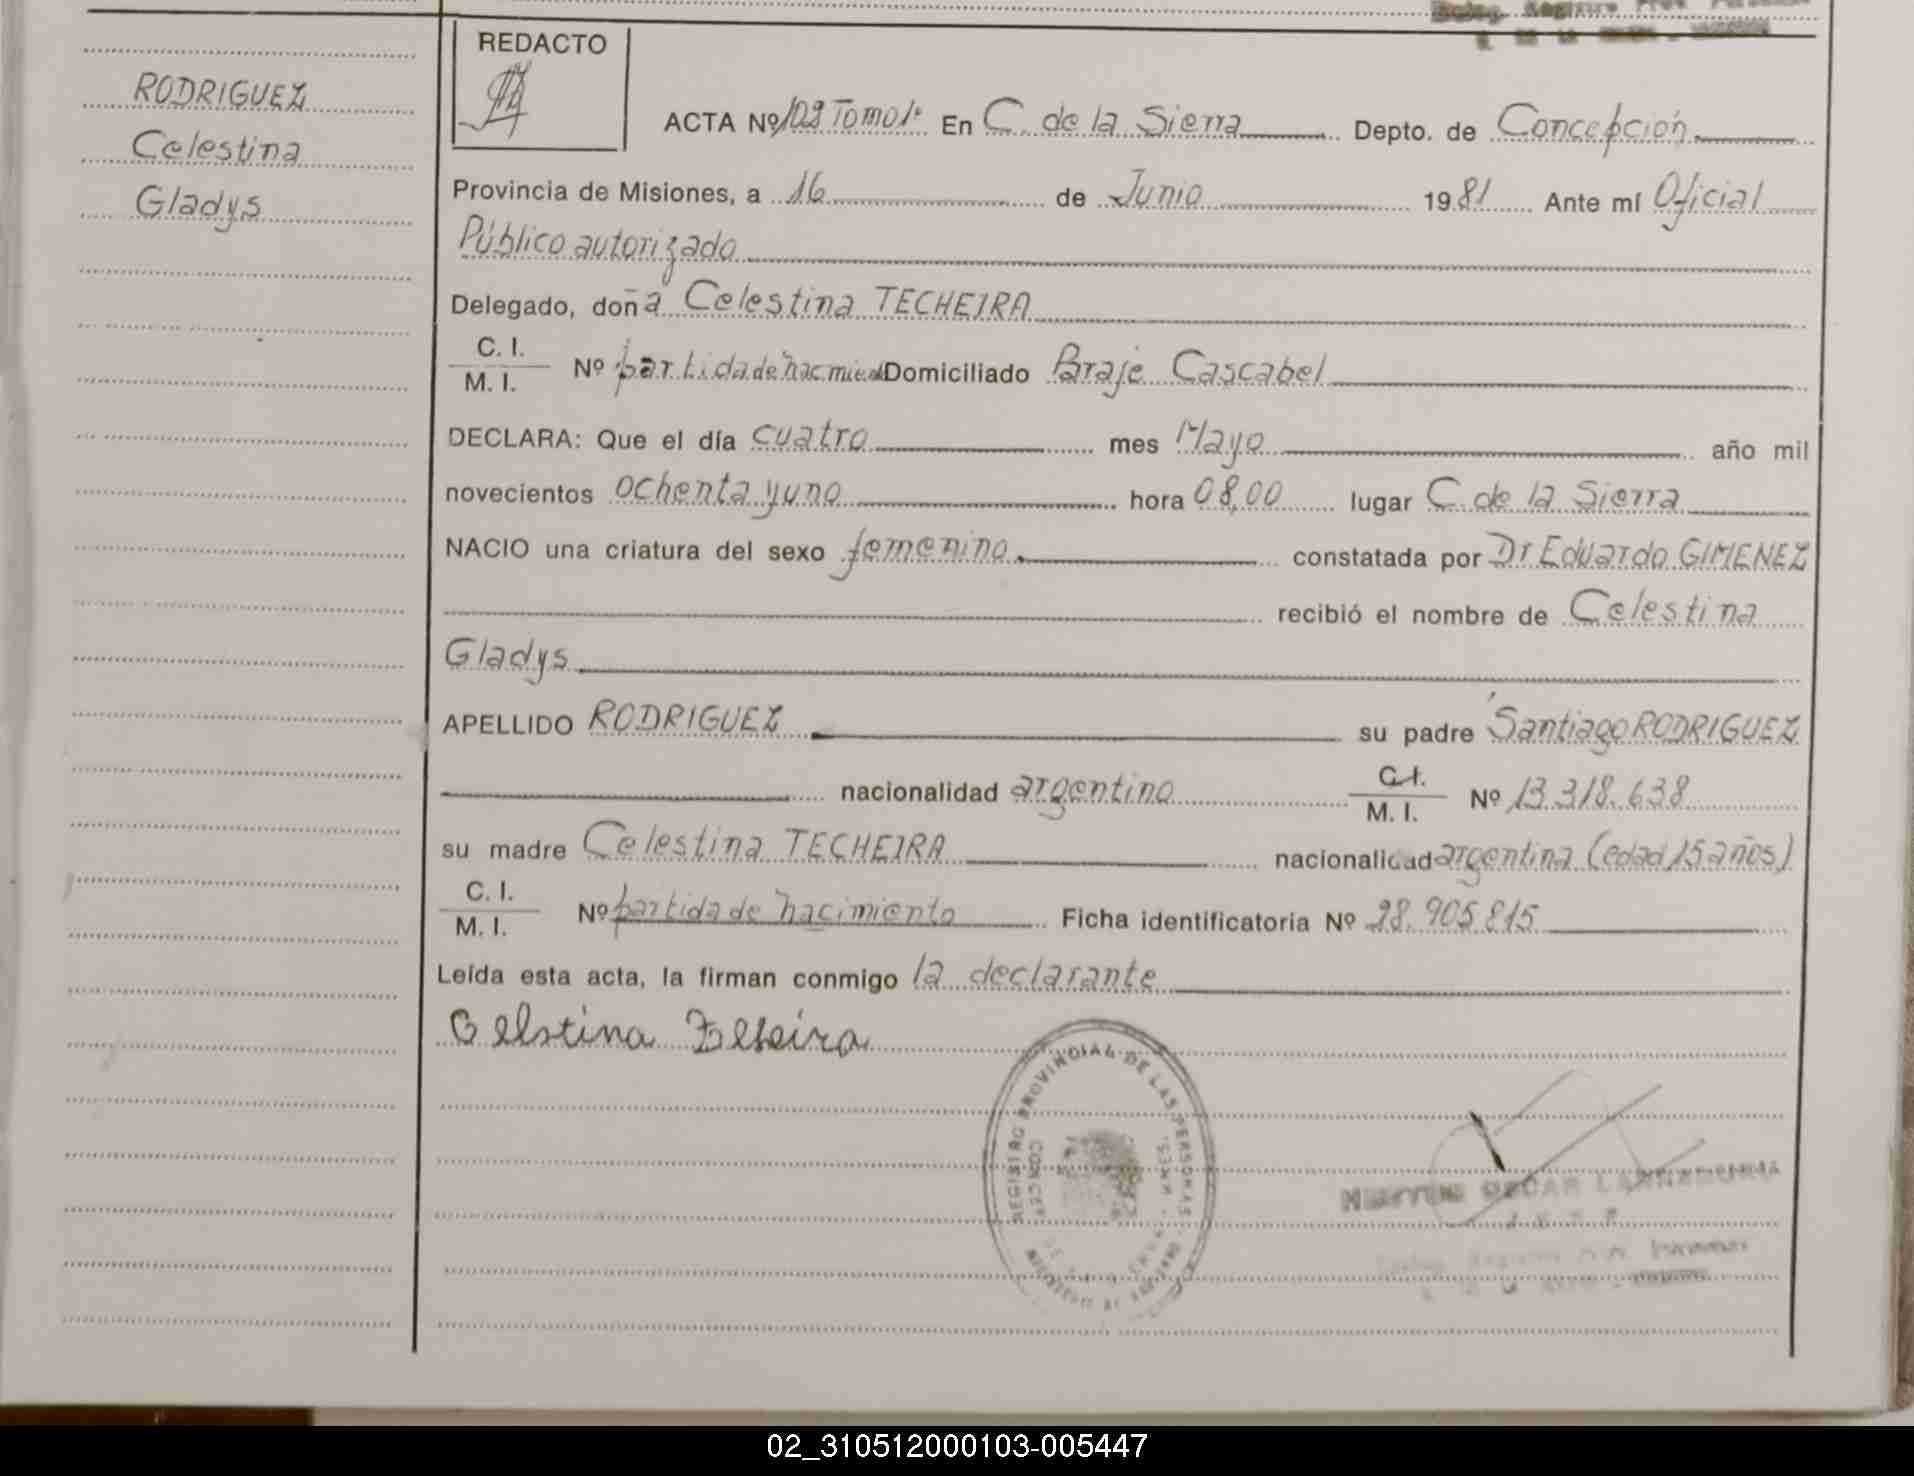 RODRIGUEZ
Celestina
Gladys
REDACTO
ACTA Nº 102 Tomo 1º En C. de la Sierra Depto. de Concepción
Provincia de Misiones, a 16 de Junio 1981 Ante mí Oficial
Público autorizado
Delegado, doña Celestina TECHEIRA
C. I.
M. I. Nº partida de nacimient Domiciliado Paraje Cascabel
DECLARA: Que el día cuatro mes Mayo año mil
novecientos ochenta y uno hora 08,00 lugar C. de la Sierra
NACIO una criatura del sexo femenino constatada por Dr Eduardo GIMENEZ
recibió el nombre de Celestina
Gladys
APELLIDO RODRIGUEZ su padre Santiago RODRIGUEZ
nacionalidad argentino C. I.
M. I. Nº 13.318.638
su madre Celestina TECHEIRA nacionalidad argentina (edad 15 años)
C. I.
M. I. Nº partida de nacimiento Ficha identificatoria Nº 28.905.815
Leída esta acta, la firman conmigo la declarante
Celstina
REGISTRO PROVINCIAL DE LAS PERSONAS
OSCAR
JEFE
02_310512000103-005447